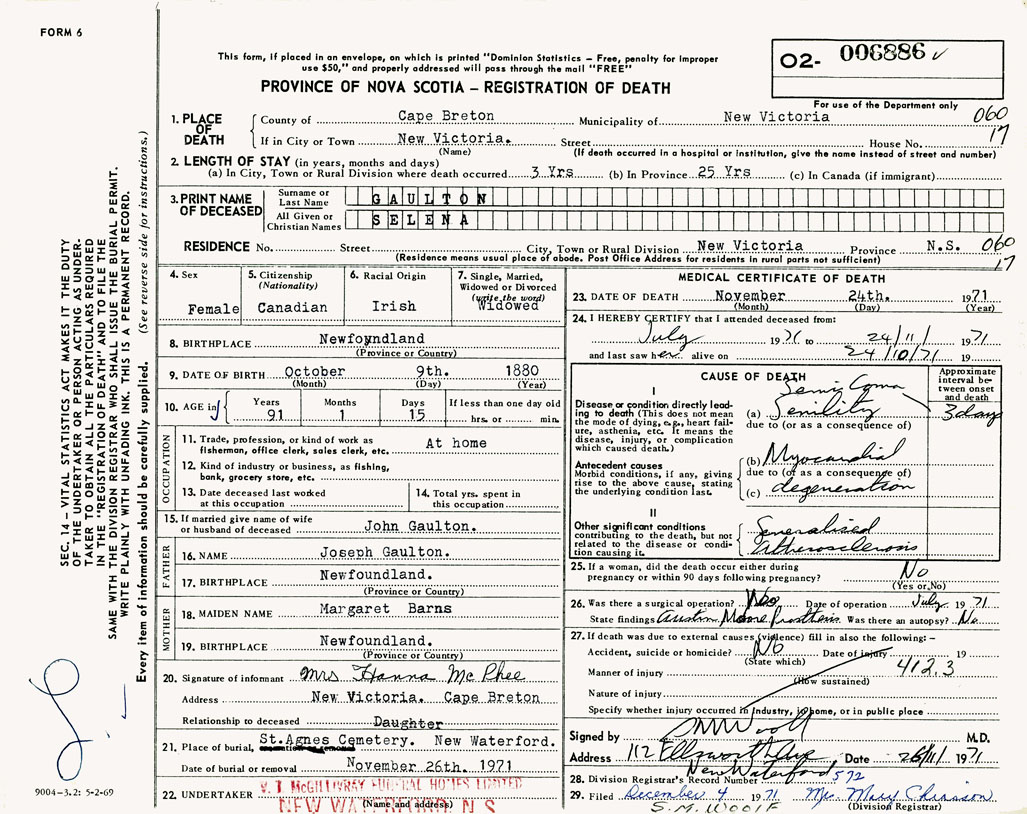 FORM 6
SEC. 14 – VITAL STATISTICS ACT MAKES IT THE DUTY
OF THE UNDERTAKER OR PERSON ACTING AS UNDER-
TAKER TO OBTAIN ALL THE PARTICULARS REQUIRED
IN THE "REGISTRATION OF DEATH" AND TO FILE THE
SAME WITH THE DIVISION REGISTRAR WHO SHALL ISSUE THE BURIAL PERMIT.
WRITE PLAINLY WITH UNFADING INK. THIS IS A PERMANENT RECORD.
Every item of information should be carefully supplied. (See reverse side for instructions.)
9004-3.2: 5-2-69
This form, if placed in an envelope, on which is printed "Dominion Statistics – Free, penalty for improper
use $50," and properly addressed will pass through the mail "FREE"
PROVINCE OF NOVA SCOTIA – REGISTRATION OF DEATH
02- 006886
For use of the Department only
060
17
1. PLACE OF DEATH
County of Cape Breton Municipality of New Victoria
If in City or Town New Victoria. Street House No.
(Name) (If death occurred in a hospital or institution, give the name instead of street and number)
2. LENGTH OF STAY (in years, months and days)
(a) In City, Town or Rural Division where death occurred 3 Yrs (b) In Province 25 Yrs (c) In Canada (if immigrant)
3. PRINT NAME OF DECEASED
Surname or Last Name GAULTON
All Given or Christian Names SELENA
RESIDENCE No. Street City, Town or Rural Division New Victoria Province N.S. 060
(Residence means usual place of abode. Post Office Address for residents in rural parts not sufficient) 17
4. Sex
Female
5. Citizenship (Nationality)
Canadian
6. Racial Origin
Irish
7. Single, Married, Widowed or Divorced (write the word)
Widowed
8. BIRTHPLACE Newfoyndland
(Province or Country)
9. DATE OF BIRTH October 9th. 1880
(Month) (Day) (Year)
10. AGE in
Years Months Days If less than one day old
91 1 15 hrs. or min.
OCCUPATION
11. Trade, profession, or kind of work as fisherman, office clerk, sales clerk, etc. At home
12. Kind of industry or business, as fishing, bank, grocery store, etc.
13. Date deceased last worked at this occupation
14. Total yrs. spent in this occupation
15. If married give name of wife or husband of deceased John Gaulton.
FATHER
16. NAME Joseph Gaulton.
17. BIRTHPLACE Newfoundland.
(Province or Country)
MOTHER
18. MAIDEN NAME Margaret Barns
19. BIRTHPLACE Newfoundland.
(Province or Country)
20. Signature of informant Mrs Hanna McPhee
Address New Victoria. Cape Breton
Relationship to deceased Daughter
21. Place of burial, St.Agnes Cemetery. New Waterford.
Date of burial or removal November 26th. 1971
22. UNDERTAKER V. J. McGILLIVRAY FUNERAL HOMES LIMITED
(Name and address)
NEW WATERFORD N S
MEDICAL CERTIFICATE OF DEATH
23. DATE OF DEATH November 24th. 1971
(Month) (Day) (Year)
24. I HEREBY CERTIFY that I attended deceased from:
July 1971 to 24/11/ 1971
and last saw her alive on 24/10/71 19
CAUSE OF DEATH
Approximate interval between onset and death
I
Disease or condition directly leading to death (This does not mean the mode of dying, e.g., heart failure, asthenia, etc. It means the disease, injury, or complication which caused death.)
(a) Semi Coma Senility 3 days
due to (or as a consequence of)
Antecedent causes
Morbid conditions, if any, giving rise to the above cause, stating the underlying condition last.
(b) Myocardial
due to (or as a consequence of)
(c) degeneration
II
Other significant conditions contributing to the death, but not related to the disease or condition causing it.
Generalised
Atherosclerosis
25. If a woman, did the death occur either during pregnancy or within 90 days following pregnancy? No
(Yes or No)
26. Was there a surgical operation? Date of operation July 1971
State findings Austin Moore Prosthesis Was there an autopsy? No
27. If death was due to external causes (violence) fill in also the following: –
Accident, suicide or homicide? No Date of injury 19
(State which)
Manner of injury 412.3
(How sustained)
Nature of injury
Specify whether injury occurred in Industry, in home, or in public place
Signed by M.D.
Address 112 Ellsworth Ave Date 26/11/ 1971
New Waterford
28. Division Registrar's Record Number 572
29. Filed December 4 1971 Mrs. Mary Chiasson
S. M. WOOLF (Division Registrar)